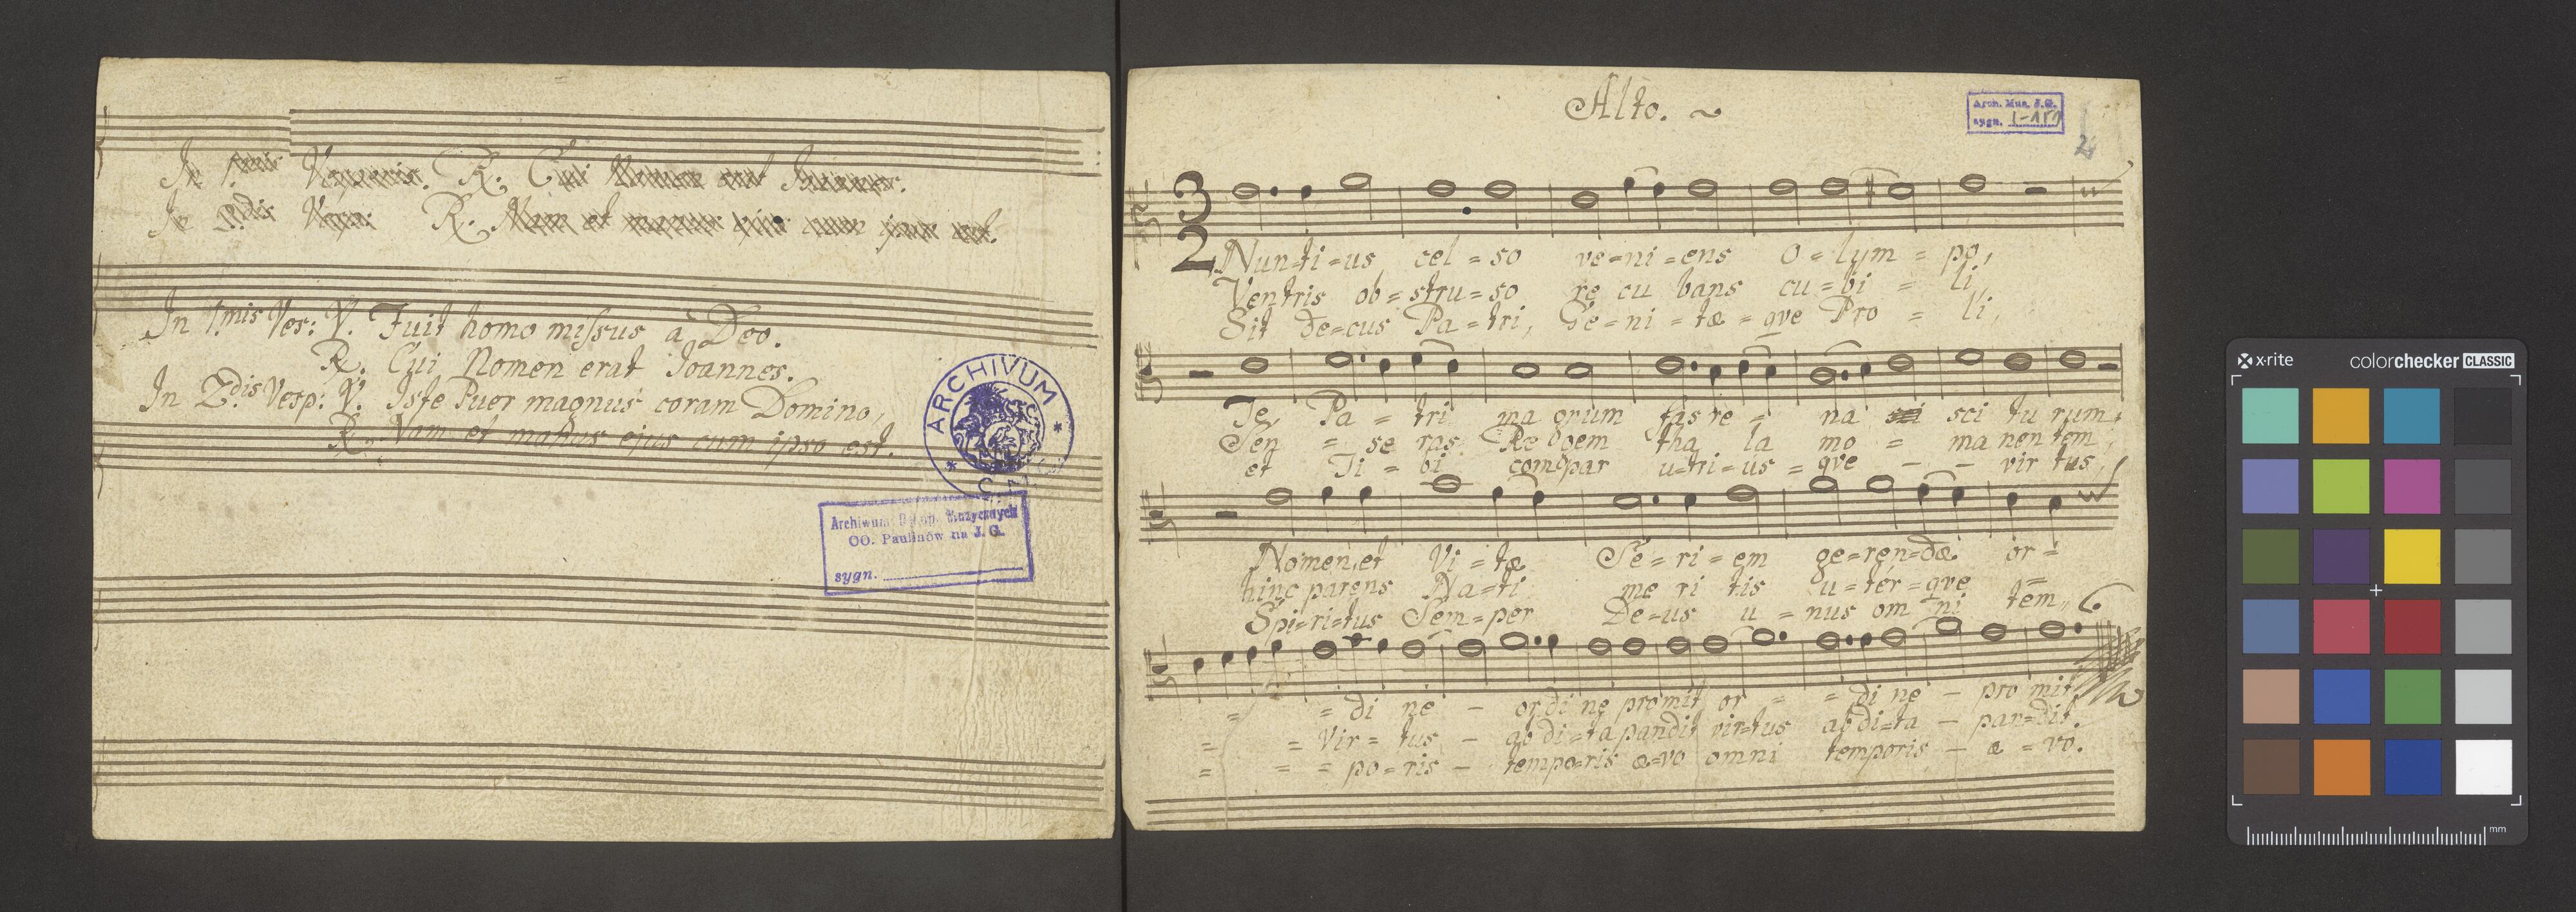 In 1.mis Vesperis. R. Cui Nomen erat Joannes.
In 2.dis Vesp: R. Nam et manus ejus cum ipso est.
In 1.mis Ves: V. Fuit homo missus a Deo.
R. Cui Nomen erat Joannes.
In 2.dis Vesp: V. Iste Puer magnus coram Domino,
R. Nam et manus ejus cum ipso est.
ARCHIVUM
Archiwum Muzycznych
OO. Paulinów na J. G.
sygn.
Alto. ~
Arch. Muz. J.G.
sygn. I-151
2
3
2
Nun=ti=us cel=so ve=ni=ens O=lym=po,
Ventris ob=stru=so re cu bans cu=bi = li,
Sit de=cus Pa=tri, Ge=ni=tæ=qve Pro = li,
Te, Pa = tri ma gnum fas re = na sci tu rum,
Sen = se ras Re gem tha la mo = ma nen tem,
et Ti = bi compar u=tri=us=qve - - vir tus,
Nomen, et Vi=tæ Se=ri=em ge=ren=dæ or =
hinc parens Na=ti me ri tis u=ter=qve =
Spi=ri=tus Sem=per De=us u = nus om ni tem,,
= = di ne - ordi ne promit or = = di ne - pro mit,
= = Vir = tus - abdi=ta pandit vir=tus abdi=ta - pan=dit.
= = = po=ris - tempo=ris æ=vo omni temporis - æ=vo.
x-rite
colorchecker CLASSIC
mm